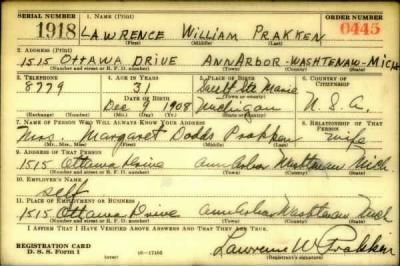 SERIAL NUMBER 1. NAME (Print) ORDER NUMBER
1918 LAWRENCE WILLIAM PRAKKEN 0445
(First) (Middle) (Last)
2. ADDRESS (Print)
1515 OTTAWA DRIVE ANN ARBOR - WASHTENAW - MICH
(Number and street or R. F. D. number) (Town) (County) (State)
3. TELEPHONE 4. AGE IN YEARS 5. PLACE OF BIRTH 6. COUNTRY OF CITIZENSHIP
8779 31 Sault Ste Marie
DATE OF BIRTH
Dec 9 1908 Michigan U. S. A.
(Exchange) (Number) (Mo.) (Day) (Yr.) (State or country)
7. NAME OF PERSON WHO WILL ALWAYS KNOW YOUR ADDRESS 8. RELATIONSHIP OF THAT PERSON
Mrs. Margaret Dodds Prakken wife
(Mr., Mrs., Miss) (First) (Middle) (Last)
9. ADDRESS OF THAT PERSON
1515 Ottawa Drive Ann Arbor Washtenaw Mich.
(Number and street or R. F. D. number) (Town) (County) (State)
10. EMPLOYER'S NAME
self
11. PLACE OF EMPLOYMENT OR BUSINESS
1515 Ottawa Drive Ann Arbor Washtenaw Mich
(Number and street or R. F. D. number) (Town) (County) (State)
I AFFIRM THAT I HAVE VERIFIED ABOVE ANSWERS AND THAT THEY ARE TRUE.
REGISTRATION CARD
D. S. S. Form 1 Lawrence W. Prakken
(Registrant's signature)